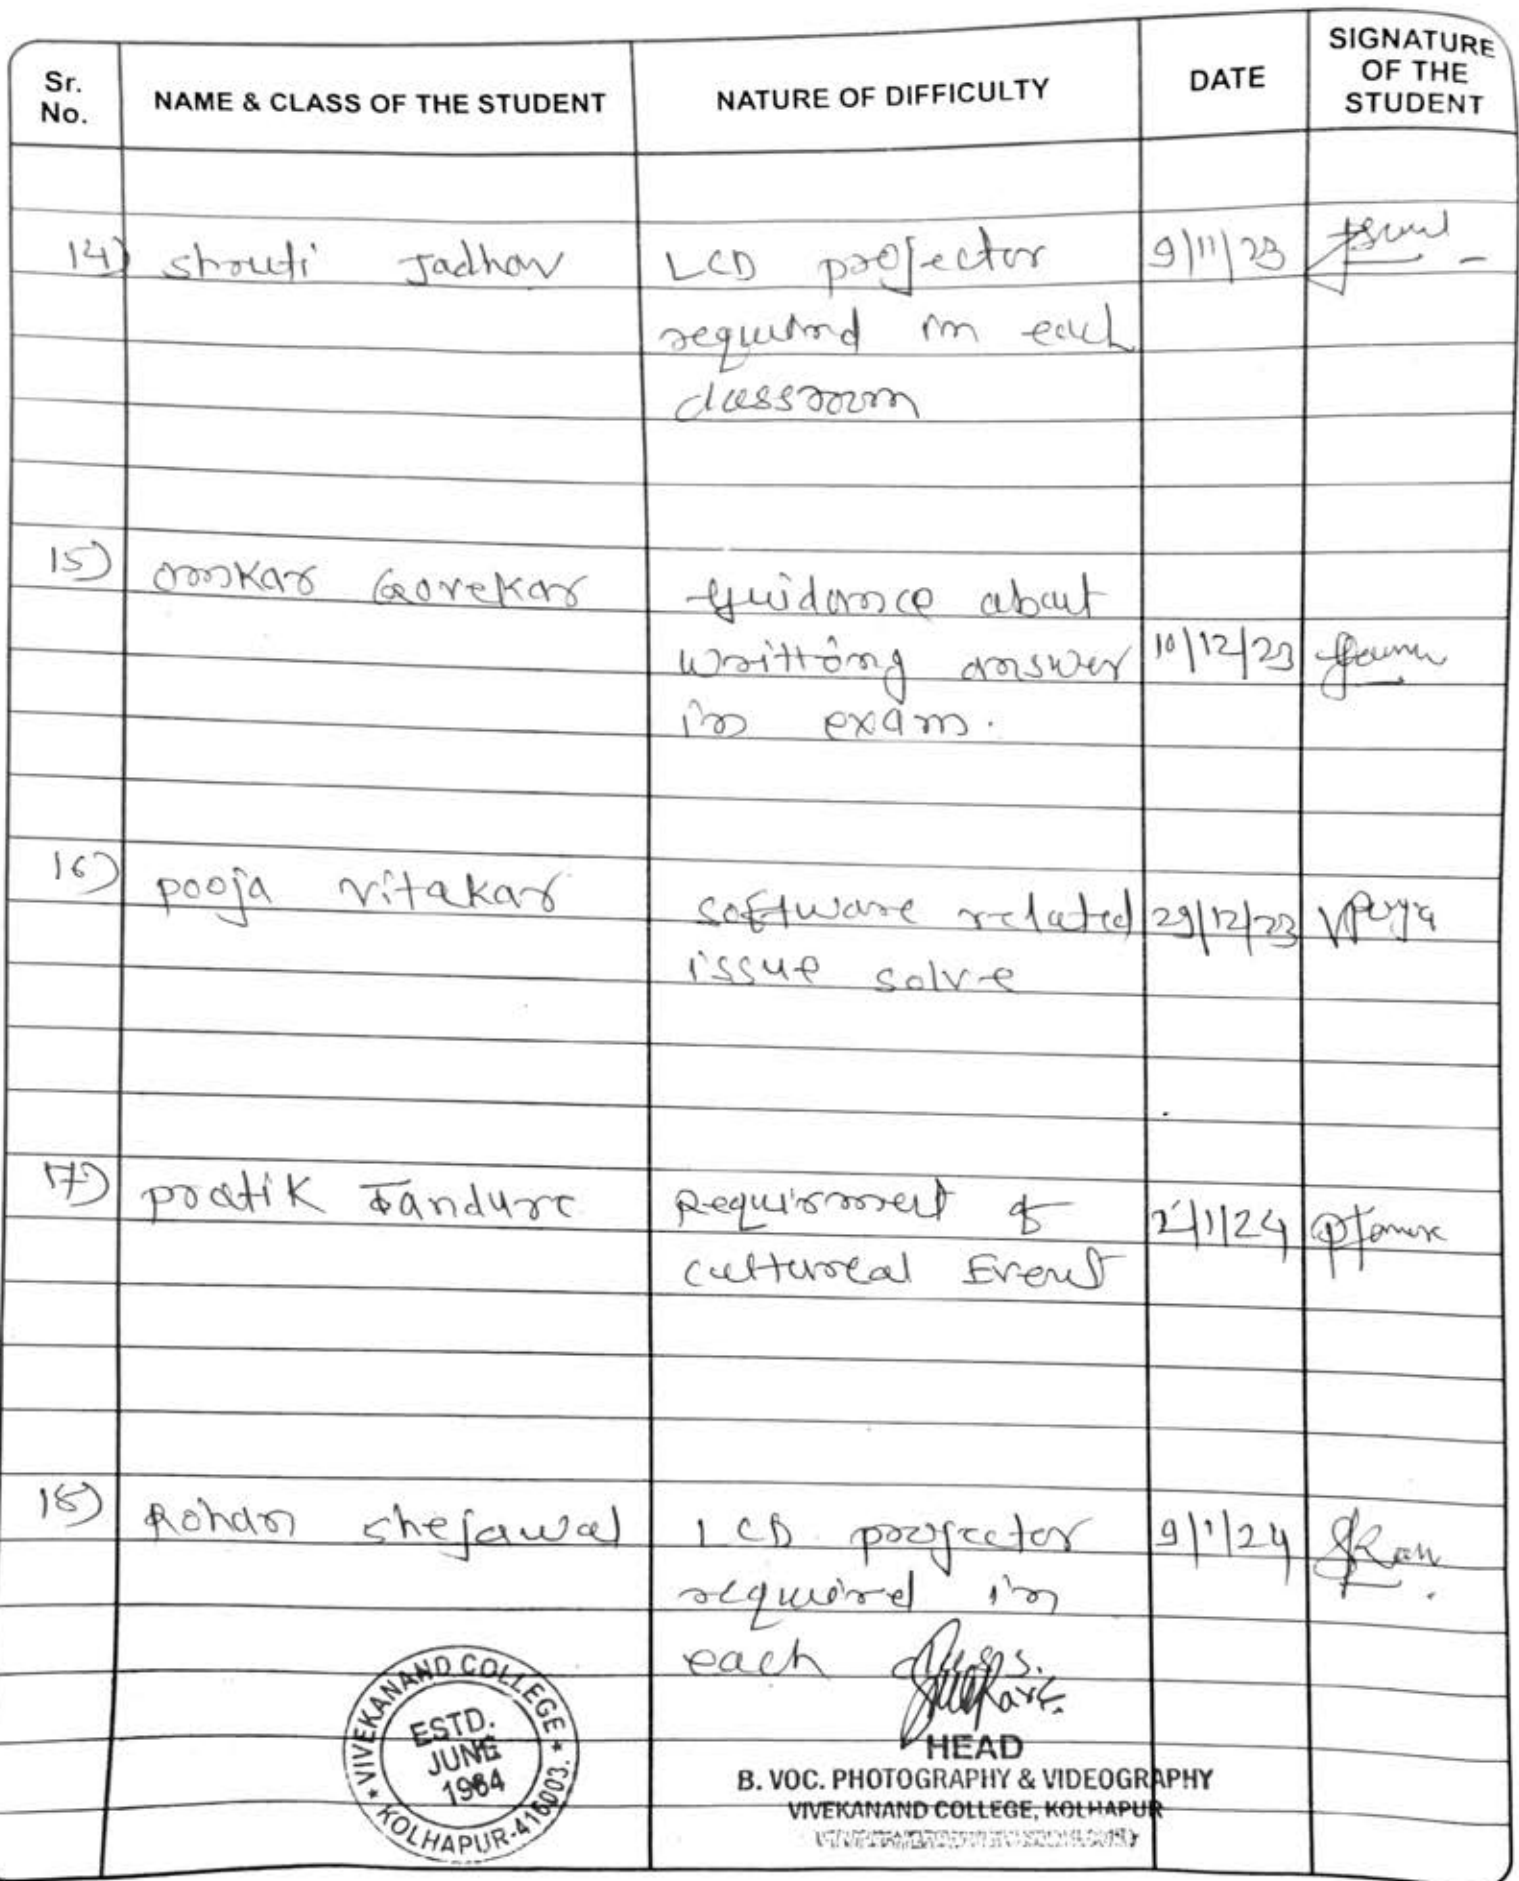 Sr. No. NAME & CLASS OF THE STUDENT NATURE OF DIFFICULTY DATE SIGNATURE OF THE STUDENT
14) Shruti Jadhav LCD projector 9/11/23
required in each
classroom
15) Omkar Gavekar Guidance about
writting answer 10/12/23
in exam.
16) pooja vitakar software related 29/12/23 VPooja
issue solve
17) pratik Tandure Requirment of 2/1/24
cultureal Event
18) Rohan Shejawal LCD projector 9/1/24
required in
each
VIVEKANAND COLLEGE
ESTD.
JUNE
1964
KOLHAPUR-416003.
HEAD
B. VOC. PHOTOGRAPHY & VIDEOGRAPHY
VIVEKANAND COLLEGE, KOLHAPUR